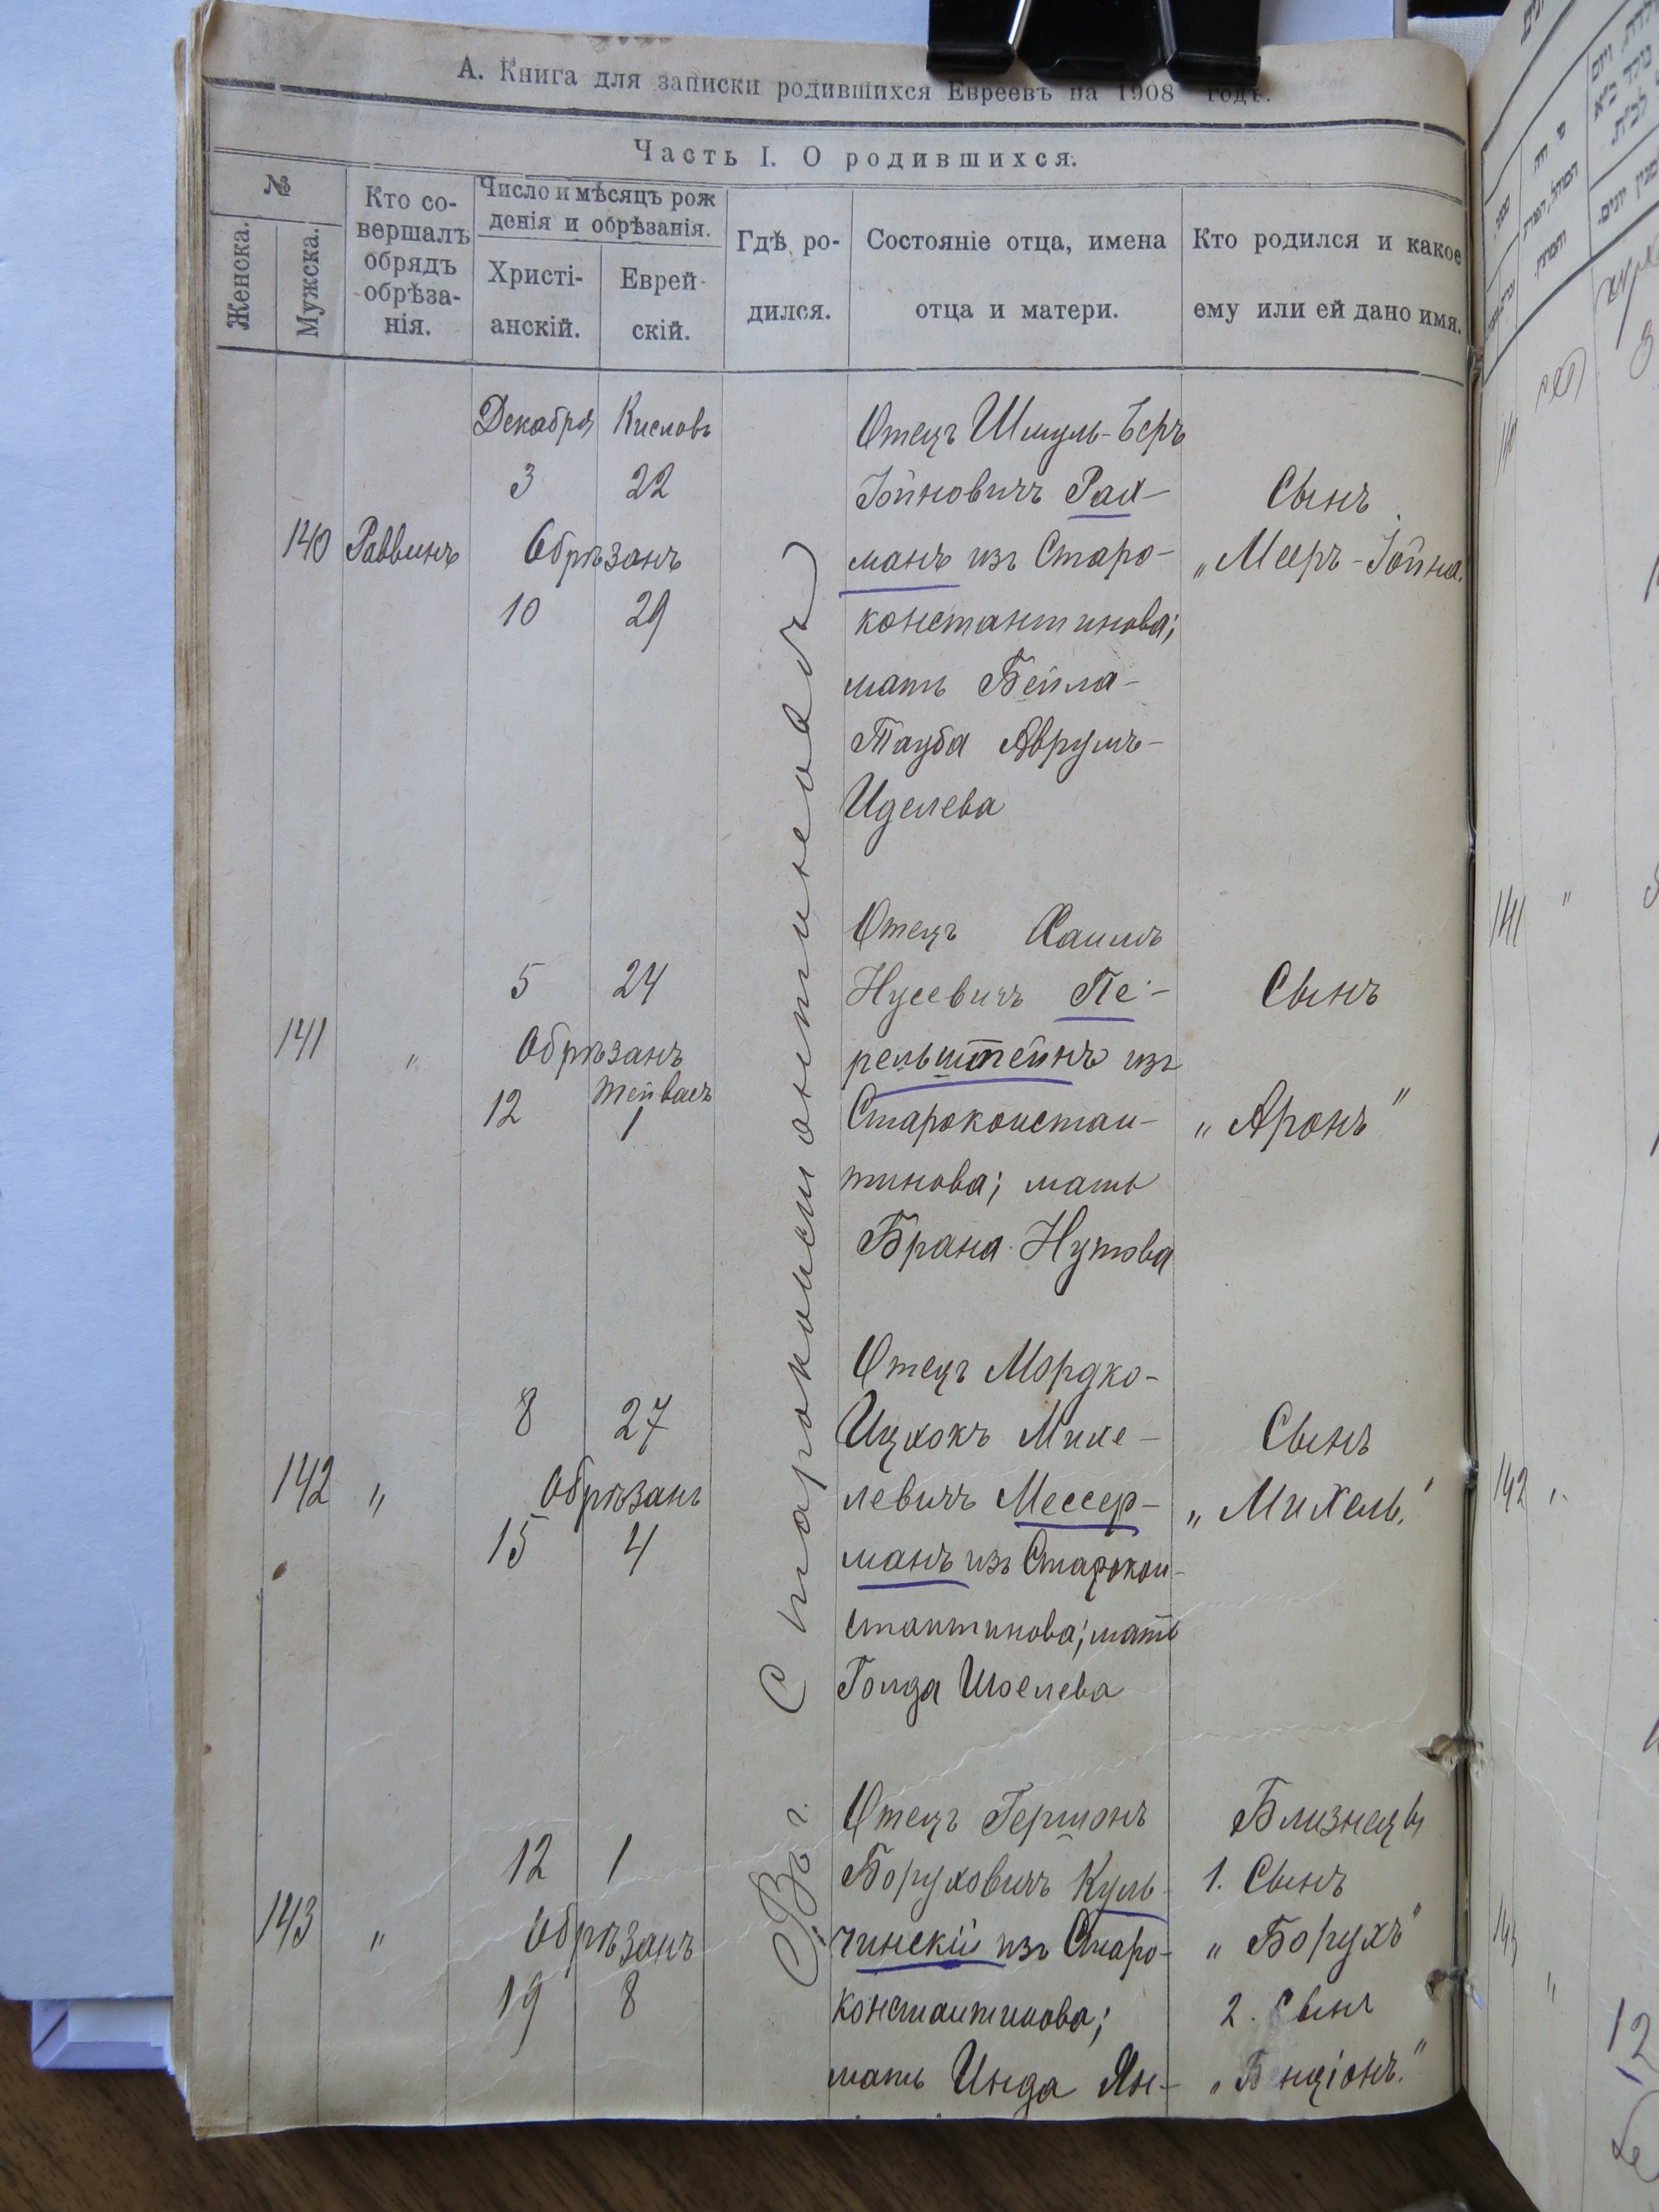 А. Книга для записки родившихся Евреевъ на 1908 годъ.
Часть I. О родившихся.
№
Женска.
Мужска.
Кто со-
вершалъ
обрядъ
обрѣза-
нія.
Число и мѣсяцъ рож
денія и обрѣзанія.
Христі-
анскій.
Еврей-
скій.
Гдѣ ро-
дился.
Состояніе отца, имена
отца и матери.
Кто родился и какое
ему или ей дано имя.
Въ г. Староконстантиновѣ
140
Раввинъ
Декабря Кислевъ
3 22
Обрѣзанъ
10 29
Отецъ Шмуль-Беръ
Іойновичъ Рах-
манъ изъ Старо-
константинова;
мать Бейла-
Тауба Аврумъ-
Иделева
Сынъ
„Мееръ-Іойна.
141
„
5 24
Обрѣзанъ
Тейвасъ
12 1
Отецъ Хаимъ
Нусевичъ Пе-
рельштейнъ изъ
Староконстан-
тинова; мать
Брана Нутова
Сынъ
„Аронъ"
142
„
8 27
Обрѣзанъ
15 4
Отецъ Мордко-
Ицхокъ Михе-
левичъ Мессер-
манъ изъ Старокон-
стантинова; мать
Голда Шоелева
Сынъ
„Михель."
143
„
12 1
Обрѣзанъ
19 8
Отецъ Гершонъ
Боруховичъ Куль-
чинскій изъ Старо-
константинова;
мать Инда Ян-
Близнецы
1. Сынъ
„Борухъ"
2. Сынъ
„Бенціонъ."
141
„
142
„
143
„
12